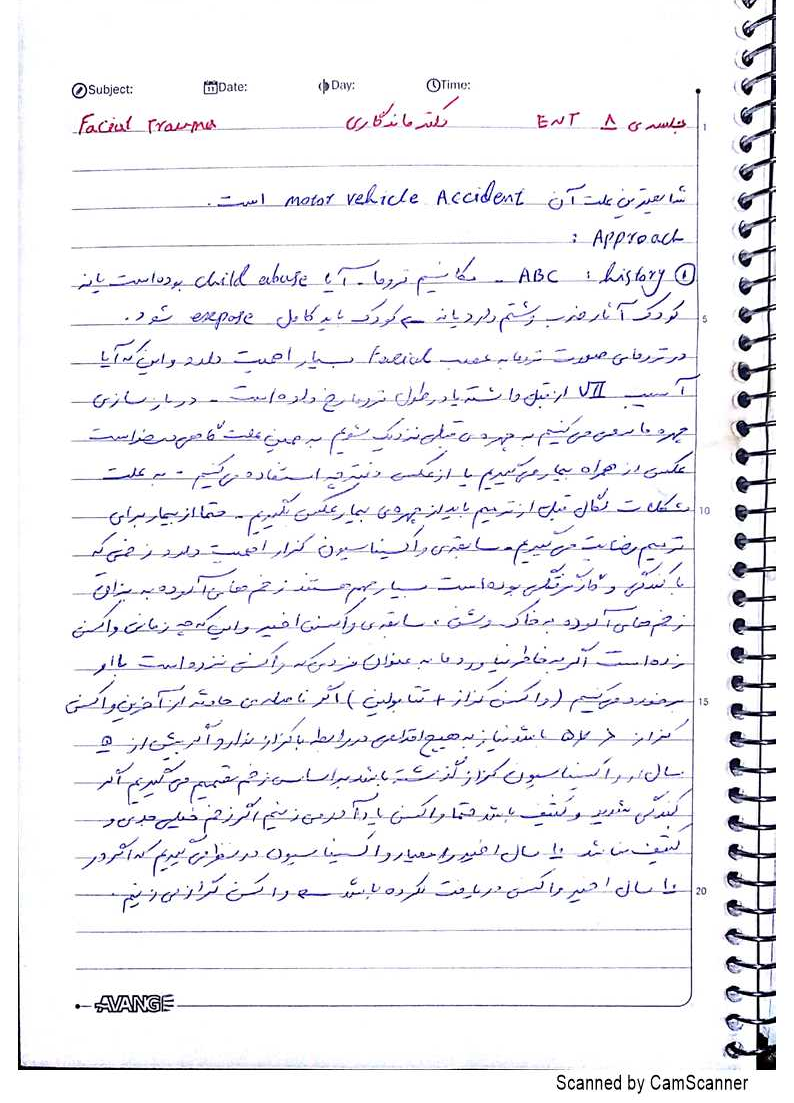 Subject: Date: Day: Time:
جلسه‌ی ۸ ENT دکتر ماندگاری Facial Trauma
شایعترین علت آن motor vehicle Accident است.
Approach :
① history : ABC - مکانیسم تروما - آیا child abuse بوده است یا نه
کودک آثار ضرب و شتم دارد یا نه ← کودک باید کامل expose شود.
در تروماهای صورت توجه به عصب Facial بسیار اهمیت دارد و این که آیا
آسیب VII از قبل داشته یا در طول تروما رخ داده است - در بازسازی
چهره ما سعی می‌کنیم به چهره‌ی قبلی نزدیک شویم به همین علت گاهی
عکسی از همراه بیمار می‌گیریم یا از عکس دفترچه استفاده می‌کنیم - به علت
مشکلات لگال قبل از ترمیم باید از چهره‌ی بیمار عکس بگیریم - حتما از بیمار برای
ترمیم رضایت می‌گیریم - سابقه‌ی واکسیناسیون کزاز اهمیت دارد زخمی که
با کندگی و گازگرفتگی بوده است بسیار مهم هستند زخم های آلوده به بزاق
زخم های آلوده به خاک و شن ، سابقه‌ی واکسن اخیر و این که چه زمانی واکسن
زده است اگر به خاطر نیاورد ما به عنوان فردی که واکسن نزده است با او
برخورد می‌کنیم (واکسن کزاز + تتابولین) اگر فاصله‌ی حادثه از آخرین واکسن
کزاز < ۵y باشد نیاز به هیچ اقدامی در رابطه با کزاز ندارد و اگر بیش از ۵
سال از واکسیناسیون کزاز گذشته باشد بر اساس زخم تصمیم می‌گیریم اگر
کندگی شدید و کثیف باشد حتما واکسن یادآور می زنیم اگر زخم خیلی جدی و
کثیف نباشد ۱۰ سال اخیر را معیار واکسیناسیون در نظر می‌گیریم که اگر در
۱۰ سال اخیر واکسن دریافت نکرده باشد ← واکسن کزاز می زنیم.
1
5
10
15
20
AVANGE
Scanned by CamScanner